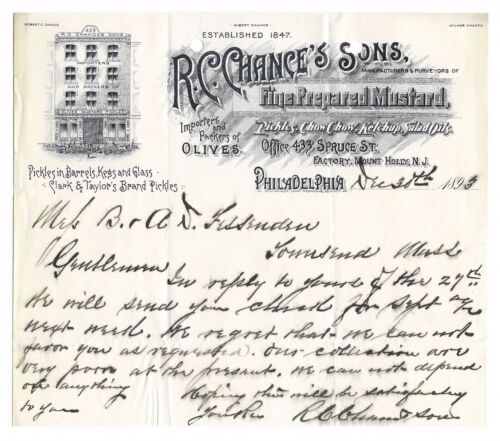 ROBERT C. CHANCE. ALBERT CHANCE. WILMER CHANCE.
ESTABLISHED 1847.
R.C. CHANCE'S SONS.
433
R.C. CHANCE'S SONS.
IMPORTERS
AND PACKERS OF
OLIVES MUSTARD PICKLES
MANUFACTURERS & PURVEYORS OF
Fine Prepared Mustard,
Importers
and
Packers of
OLIVES.
Pickles, Chow Chow, Ketchup, Salad Oils.
OFFICE 433, SPRUCE ST.
FACTORY, MOUNT HOLLY, N.J.
Pickles in Barrels, Kegs and Glass
Clark & Taylor's Brand Pickles
PHILADELPHIA Dec 30th 1893
Mess B. & A D. Fessenden
Townsend Mass
Gentlemen
In reply to yours of the 27th
We will send you check for Sept a/c
next week. We regret that we can not
favor you as requested. Our collection are
very poor at the present. We can not depend
on anything
Hoping this will be satisfactory
to you
Yours
R C Chance Sons